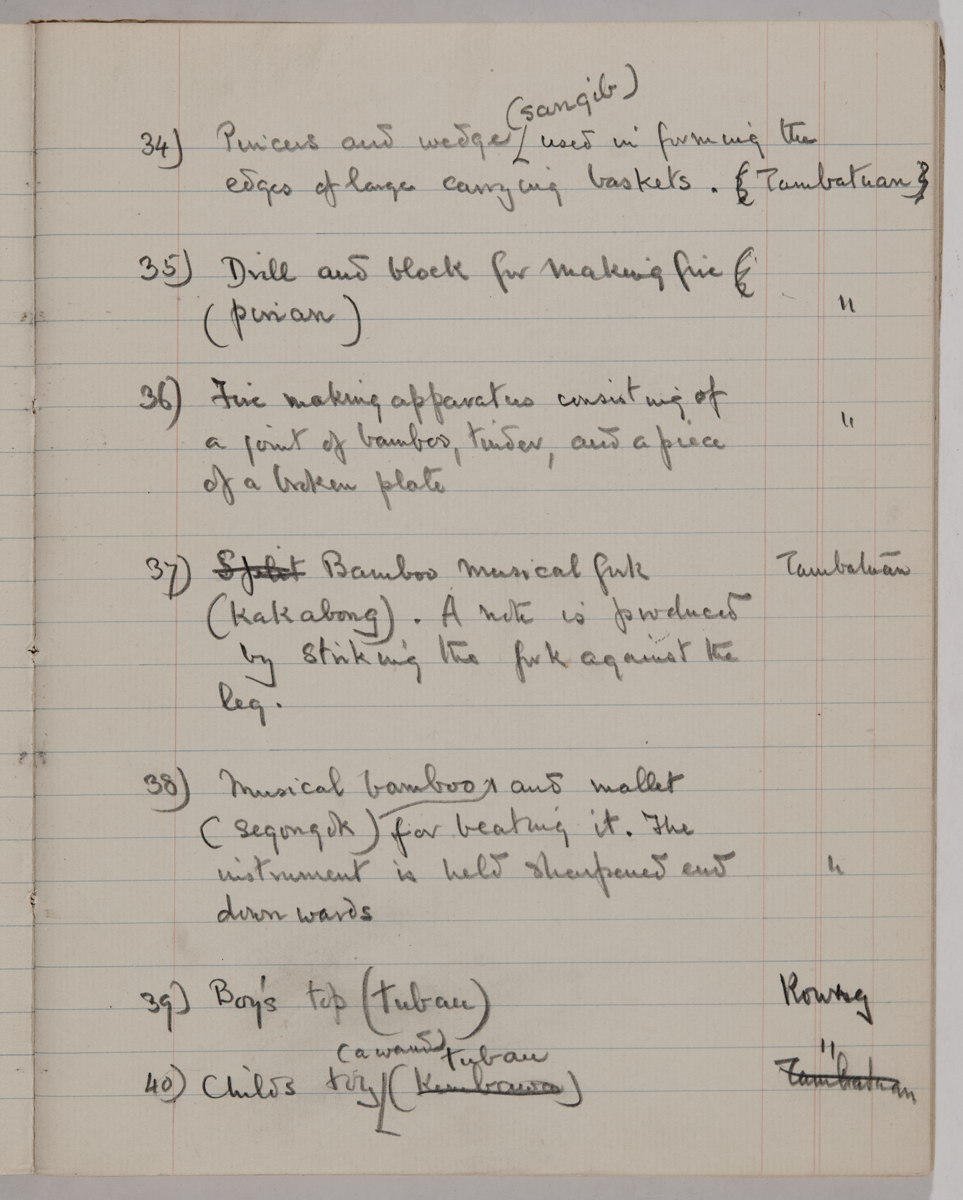 (sangib)
34) Pincers and wedge used in forming the
edges of large carrying baskets. { Tambatuan }
35) Drill and block for making fire {
(pinian) "
36) Fire making apparatus consisting of
a joint of bamboo, tinder, and a piece "
of a broken plate
37) Split Bamboo musical fork Tambatuan
(kakabong). A note is produced
by striking the fork against the
leg.
38) Musical bamboo and mallet
(segongok) for beating it. The
instrument is held sharpened end "
downwards
39) Boy's top (tubau)
(a wand) tubau "
40) Child's toy ( ) Tambatuan